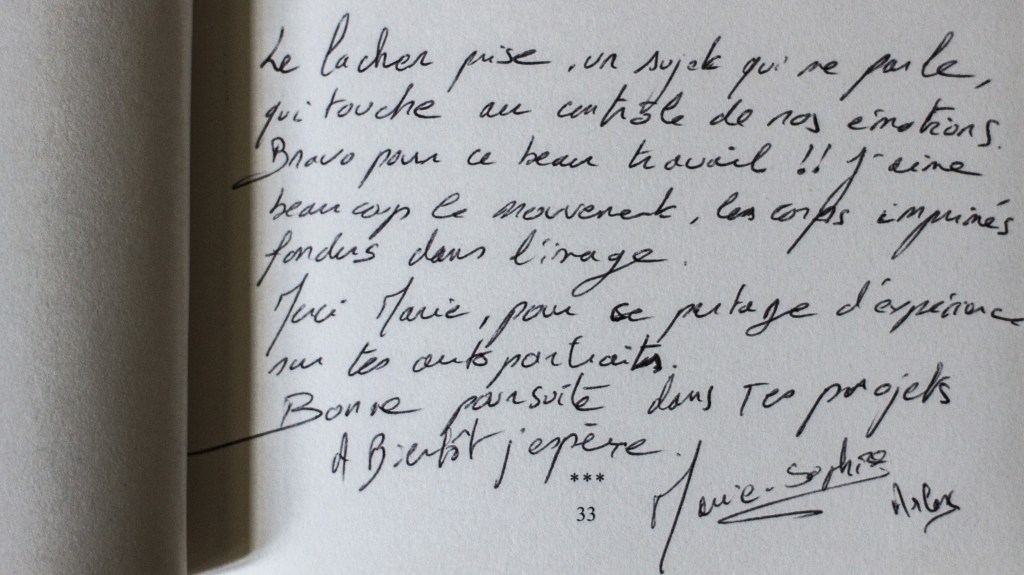 Le lacher prise, un sujet qui me parle,
qui touche au contrôle de nos émotions.
Bravo pour ce beau travail !! J'aime
beaucoup le mouvement, les corps imprimés
fondus dans l'image.
Merci Marie, pour ce partage d'expérience
sur tes auto portraits.
Bonne poursuite dans Tes projets
A Bientôt j'espère.
***
Marie-Sophie
Arles
33